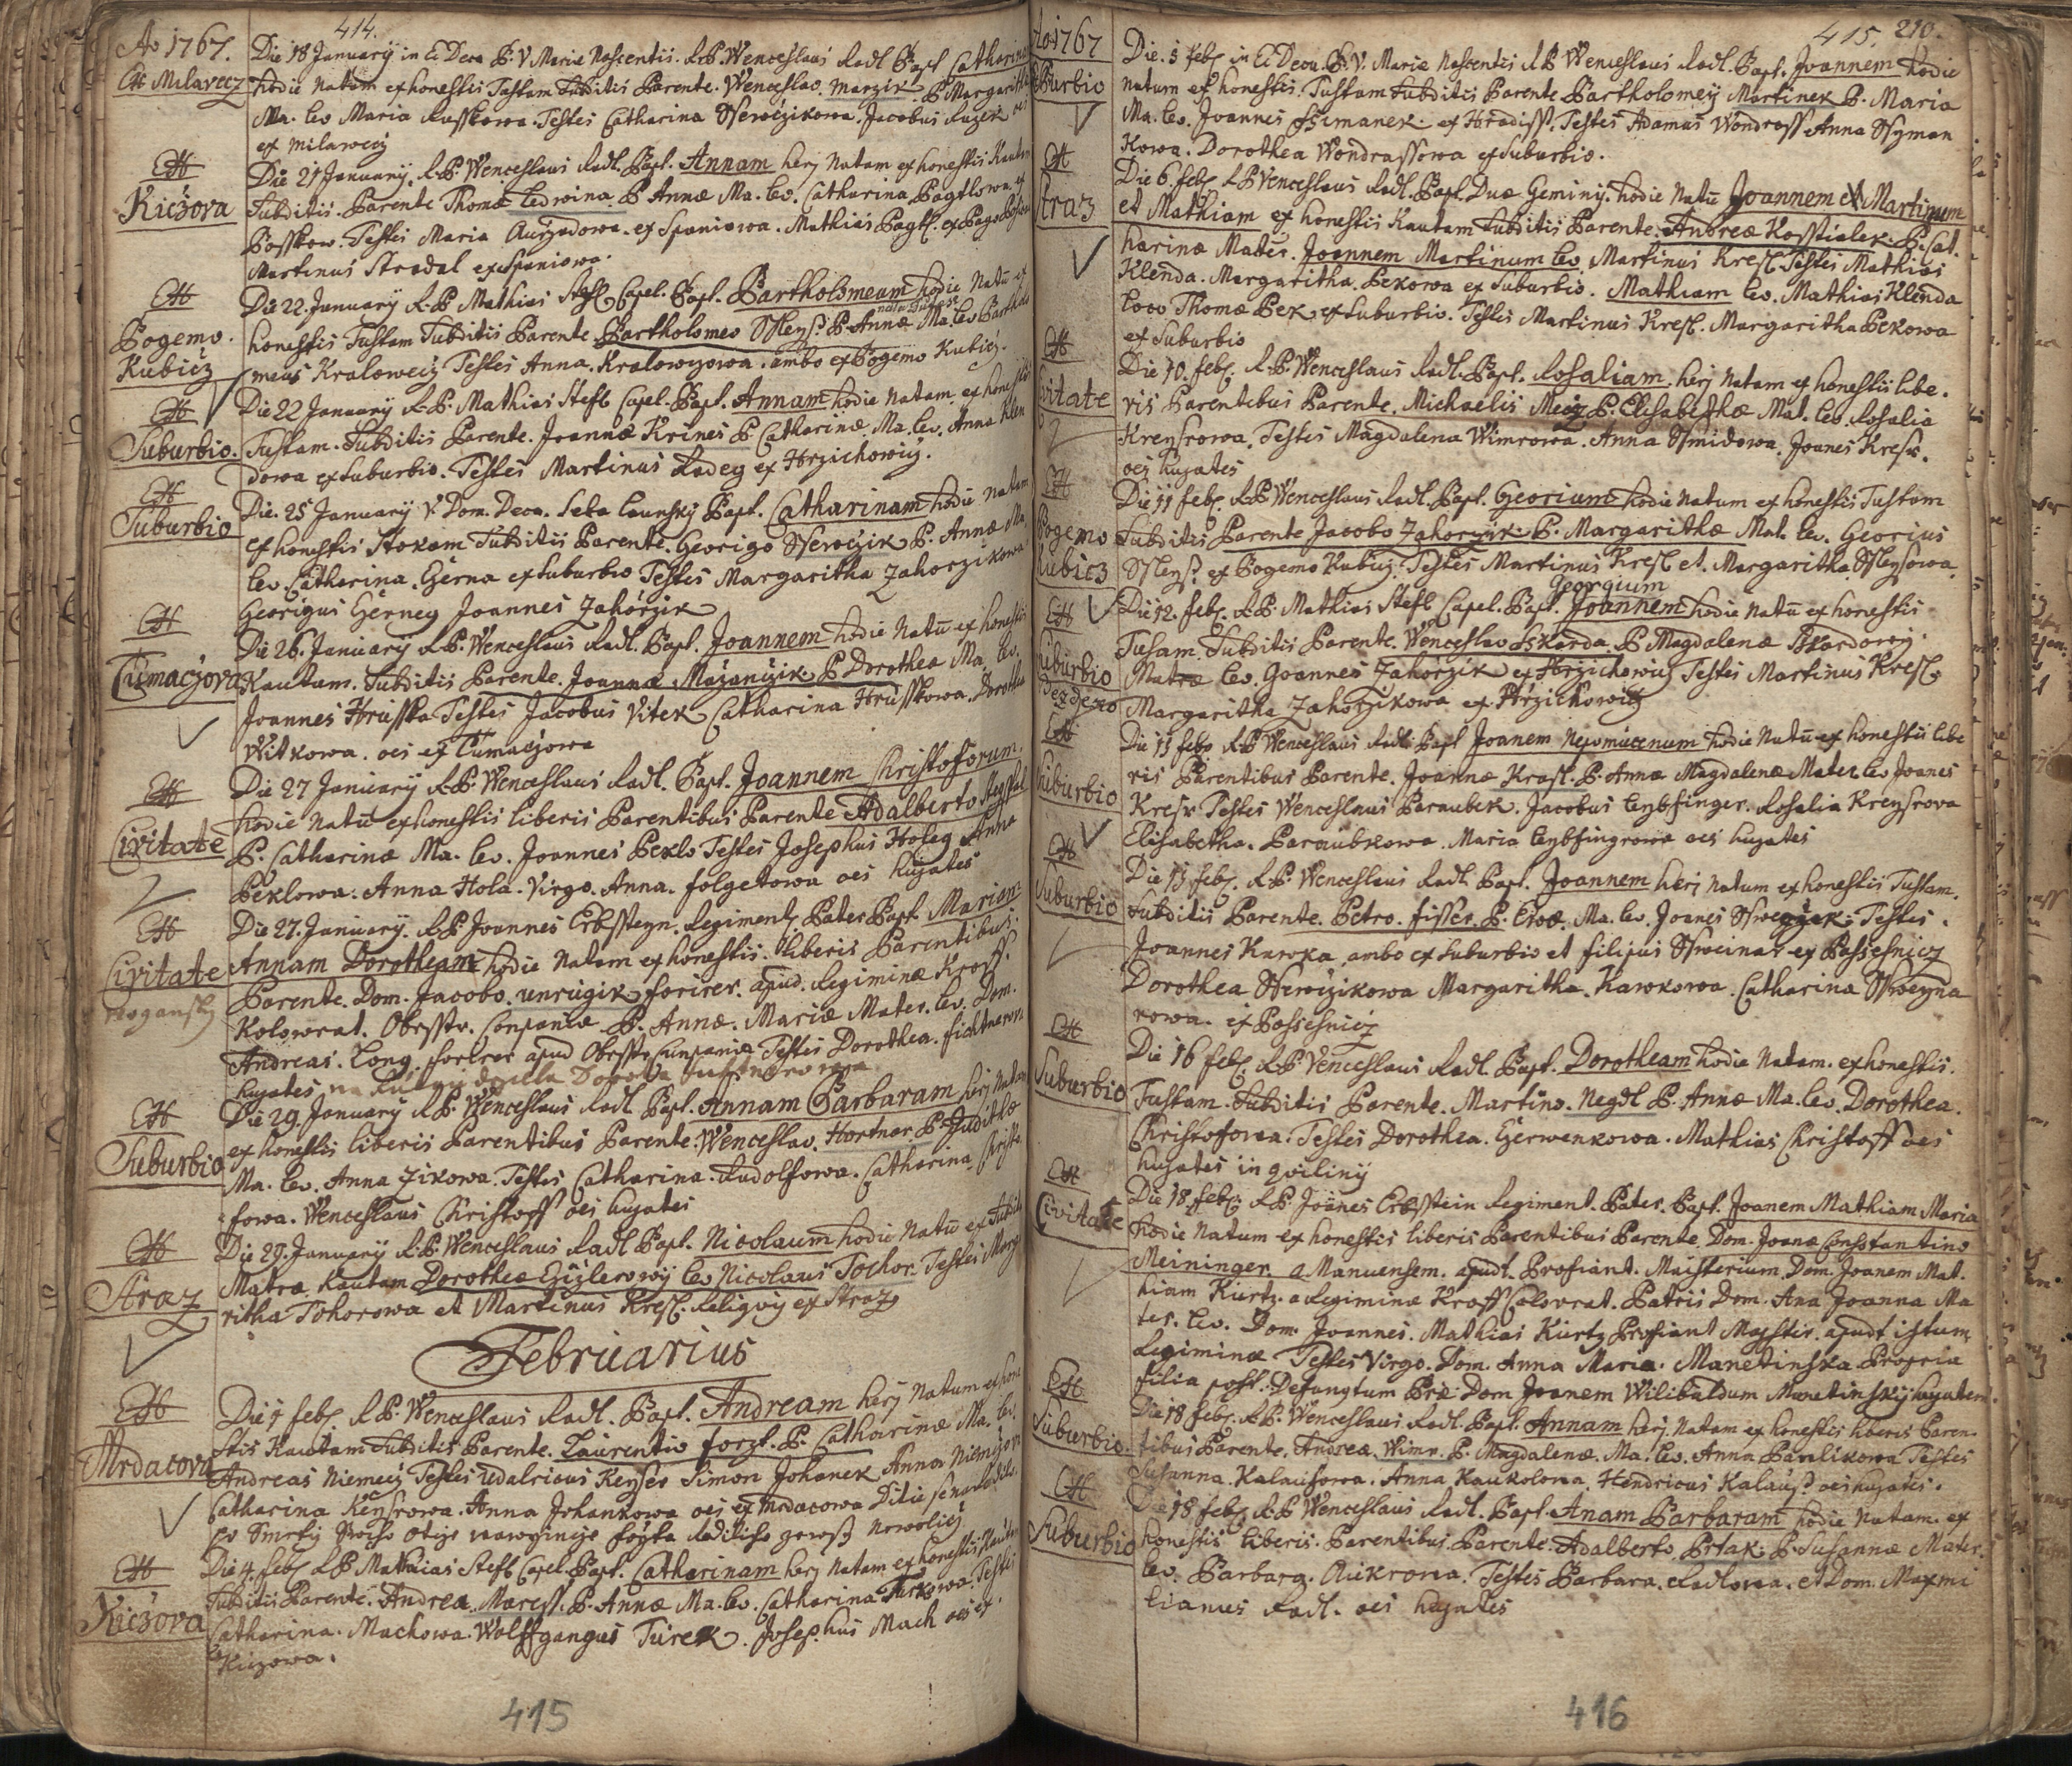 414.
Ao 1767.
Die 18 January in Ec. Deca B. V. Mariæ Nascentis. R.P. Wenceslaus Radl Bapt Catharin
Ex Milavecz
hodie Natam ex honestis Tustam Subditis Parente. Wenceslao. Marzik. P. Margarithæ
Ma. lev Maria Russkowa. Testes Catharina Sserwczikowa. Jacobus Ruzek oes
ex Milawecz
Ex
Kiczova
Die 21 January. R.P. Wenceslaus Radl. Bapt. Annam herj Natam ex honestis Kautam
Subditis. Parente Thoma Ledwina P. Annæ Ma. lev. Catharina Pagtlowa. ex
Passkow. Testes Maria Aurzadowa. ex Spaniowa. Mathias Pagtl. ex Pago
Martinus Stradal ex Spaniowa.
Ex
Pogemo.
Kubicz
Die 22. January R.P. Mathias Stefl Capel. Bapt. Bartholomeum hodie Natū ex
honestis Tustam Subditis Parente Bartholomeo Ssleys? P. Annæ Ma. lev Bartholo
meus Kralowecz Testes Anna. Kralowczowa. ambo ex Pogemo Kubicz.
Ex
Suburbio.
Die 22 January R.P. Mathias Stefl Capel. Bapt. Annam hodie Natam. ex honestis
Tustam. Subditis Parente. Joannæ Krines P Catharinæ. Ma. lev. Anna Klen
dowa ex Suburbio. Testes Martinus Radey ex Hrzichowicz.
Ex
Suburbio
Die. 25 January V. Dom. Deca. Seba Launsky Bapt. Catharinam hodie Natam
ex honestis Stokam Subditis Parente. Georigo Sserwczik P. Annæ Ma.
lev Catharina. Czerna ex Suburbio Testes Margaritha Zahorzikowa
Georigus Czerney Joannes Zahorzik
Ex
Czizmaczova
Die 26. January R.P. Wenceslaus Radl. Bapt. Joannem hodie Natū ex honestis
Kautam. Subditis Parente. Joannæ Mazanczik P Dorotheæ Ma. lev.
Joannes Hrusska Testes Jacobus Vitek Catharina Hrusskowa. Dorothea
Witkowa. oes ex Czumaczowa
Ex
Civitate
Die 27 January R.P. Wenceslaus Radl. Bapt. Joannem Christoforum.
hodie Natū ex honestis liberis Parentibus Parente Adalberto
P. Catharinæ Ma. lev. Joannes Peklo Testes Josephus Holeg Anna
Peklowa. Anna Hola. Virgo. Anna. Folgetowa oes hujates
Ex
Civitate
Die 27. January. R.P. Joannes Erbsteyn. Regiment. Pater Bapt. Mariam
Annam Dorotheam hodie Natam ex honestis. liberis Parentibus.
Parente. Dom. Jacobo. unrugik forirer. apud. Regiminæ Kroff.
Kolowrat. Obrsstr. Companiæ P. Annæ. Mariæ Mater. lev. Dom.
Andreas. Long forirer apud Obrsstr Companiæ Testes Dorothea. fichtnerowa
hujates
Ex
Suburbio
Die 29. January R.P. Wenceslaus Radl Bapt. Annam Barbaram herj Natam
ex honestis liberis Parentibus Parente. Wenceslao. Hortner P. Judithæ
Ma. lev. Anna Zikowa. Testes Catharina. Rudolfowa. Catharina Christo
fowa. Wenceslaus Christoff oes hujates
Ex
Straz
Die 29. January R.P. Wenceslaus Radl Bapt. Nicolaum hodie Natū ex Subdita
Matræ. Kautam Dorotheæ Czizlerowy lev Nicolaus Tochor. Testes Marga
ritha Tohorowa et Martinus Kresl. Religvij ex Straz
Februarius
Ex
Mrdacova
Die 1 feb. R.P. Wenceslaus Radl. Bapt. Andream herj Natum ex hone
stis Kautam Subditis Parente. Laurentio forzt. P. Catharinæ Ma. lev.
Andreas Niemecz Testes Udalricus Keyser Simon Johanek Anna Niemczowa
Catharina Keysrowa. Anna Johankowa oes ex Mrdacowa
Ex
Kiczova
Die 4. feb. R.P. Mathias Stefl Capel. Bapt. Catharinam herj Natam ex honestis Kautam
Subditis Parente. Andrea. Maress. P. Annæ Ma. lev. Catharina Turkowa. Testes
Catharina. Machowa. Wolffgangus Turek. Josephus Mach oes ex.
Kiczowa.
415
415. 210.
Ao 1767
Ex Suburbio
Die. 5 feb. in Ec. Deca. B. V. Mariæ Nascentis R.P. Wenceslaus Radl. Bapt. Joannem hodie
natum ex honestis. Tustam Subditis Parente Bartholomeij Martinek P. Maria
Ma. lev. Joannes Ssimanek. ex Hradisst. Testes Adamus Wondrass Anna Ssyman
kowa. Dorothea Wondrassowa ex Suburbio.
Ex
Straz
Die 6. feb. R.P. Wenceslaus Radl. Bapt. Duæ Geminij. hodie Natū Joannem et Martinum
et Mathiam ex honestis Kautam Subditis Parente. Andreæ Kosstialek. P. Cat.
harinæ Mater. Joannem Martinum lev. Martinus Kresl. Testes Mathias
Klenda. Margaritha. Pekowa ex Suburbio. Mathiam lev. Mathias Klenda
loco Thomæ Pek ex Suburbio. Testes Martinus Kresl. Margaritha Pekowa
ex Suburbio
Ex
Civitate
Die 10. feb. R.P. Wenceslaus Radl. Bapt. Rosaliam. herj Natam ex honestis libe.
ris Parentibus Parente. Michaelis Mecz P. Elisabethæ Mat. lev. Rosalia
Kreysrowa. Testes Magdalena Wimrowa. Anna Ssmidowa. Joanes Kresr.
oes hujates
Ex
Pogemo
Kubicz
Die 11 feb. R.P. Wenceslaus Radl. Bapt. Georium hodie Natum ex honestis Tustam
Subditis Parente Jacobo Zahorzik P. Margarithæ Mat. lev. Georius
Ssleys? ex Pogemo Kubicz. Testes Martinus Kresl et. Margaritha Ssleysowa
Ex
Suburbio
Die 12. feb. R.P. Mathias Stefl Capel. Bapt. Joannem Georgium hodie Natū ex honestis
Tusam. Subditis Parente. Wenceslao Sskarda. P Magdalenæ Skardowy.
Matræ lev. Joannes Zahorzik ex Hrzichowicz Testes Martinus Kresl
Margaritha Zahorzikowa. ex Hrzichowicz
Ex
Suburbio
Die 13 feb. R.P. Wenceslaus Radl. Bapt Joanem Nepomucenum hodie Natū ex honestis libe
ris Parentibus Parente. Joannæ Krasl. P. Annæ Magdalenæ Mater lev Joanes
Kresr Testes Wenceslaus Paraubek. Jacobus leybfinger. Rosalia Kreysrova
Elisabetha. Paraubkowa. Maria leybfingrowa oes hujates
Ex
Suburbio
Die 13 feb. R.P. Wenceslaus Radl. Bapt. Joannem herj Natum ex honestis Tustam.
Subditis Parente. Petro. fisser. P. Evæ. Ma. lev. Joanes Testes.
Joannes Kawka ambo ex Suburbio et filipus Ssweinar ex Passesnicz
Dorothea Sserwczikowa Margaritha. Kawkowa. Catharina Ssweyna
rowa. ex Passesnicz
Ex
Suburbio
Die 16 feb. R.P. Wenceslaus Radl. Bapt. Dorotheam hodie Natam. ex honestis.
Tustam. Subditis Parente. Martino. Negdl P. Annæ Ma. lev. Dorothea.
Christofowa. Testes Dorothea. Czerwenkowa. Mathias Christoff oes
hujates in qviliny
Ex
Civitate
Die 18. feb. R.P. Joanes Erbsstein Regiment. Pater. Bapt. Joanem Mathiam Maria
hodie Natum ex honestis liberis Parentibus Parente. Dom. Joanæ Constantino
Meininger. a Manuensem. apudt. Profiant. Maisterium. Dom. Joanem Mat.
hiam Kurtz. a Regiminæ Kroff Colovrat. Patris Dom. Ana Joanna Ma
ter. lev. Dom. Joannes. Mathias Kurtz Profiant Mayster. apudt istum
Regiminæ Testes Virgo. Dom. Anna Maria. Manetinska. Propria
filia post. Defungtum Præ Dom Joanem Wilibaldum Manetinsky hujatem.
Ex
Suburbio.
Die 18 feb. R.P. Wenceslaus Radl. Bapt. Annam herj. Natam ex honestis liberis Paren.
tibus Parente. Andrea. Wimr. P. Magdalenæ. Ma. lev. Anna Pawlikowa Testes
Susanna. Kalausowa. Anna Kaukolowa. Hendricus Kalaus? oes hujates.
Ex
Suburbio
Die 18 feb. R.P. Wenceslaus Radl. Bapt. Anam Barbaram hodie Natam. ex
honestis liberis. Parentibus. Parente. Adalberto. Ptak. P. Susannæ Mater.
lev. Barbara. Aukrona. Testes Barbara. Radlowa. et Dom. Maxmi
lianus Radl. oes hujates
416